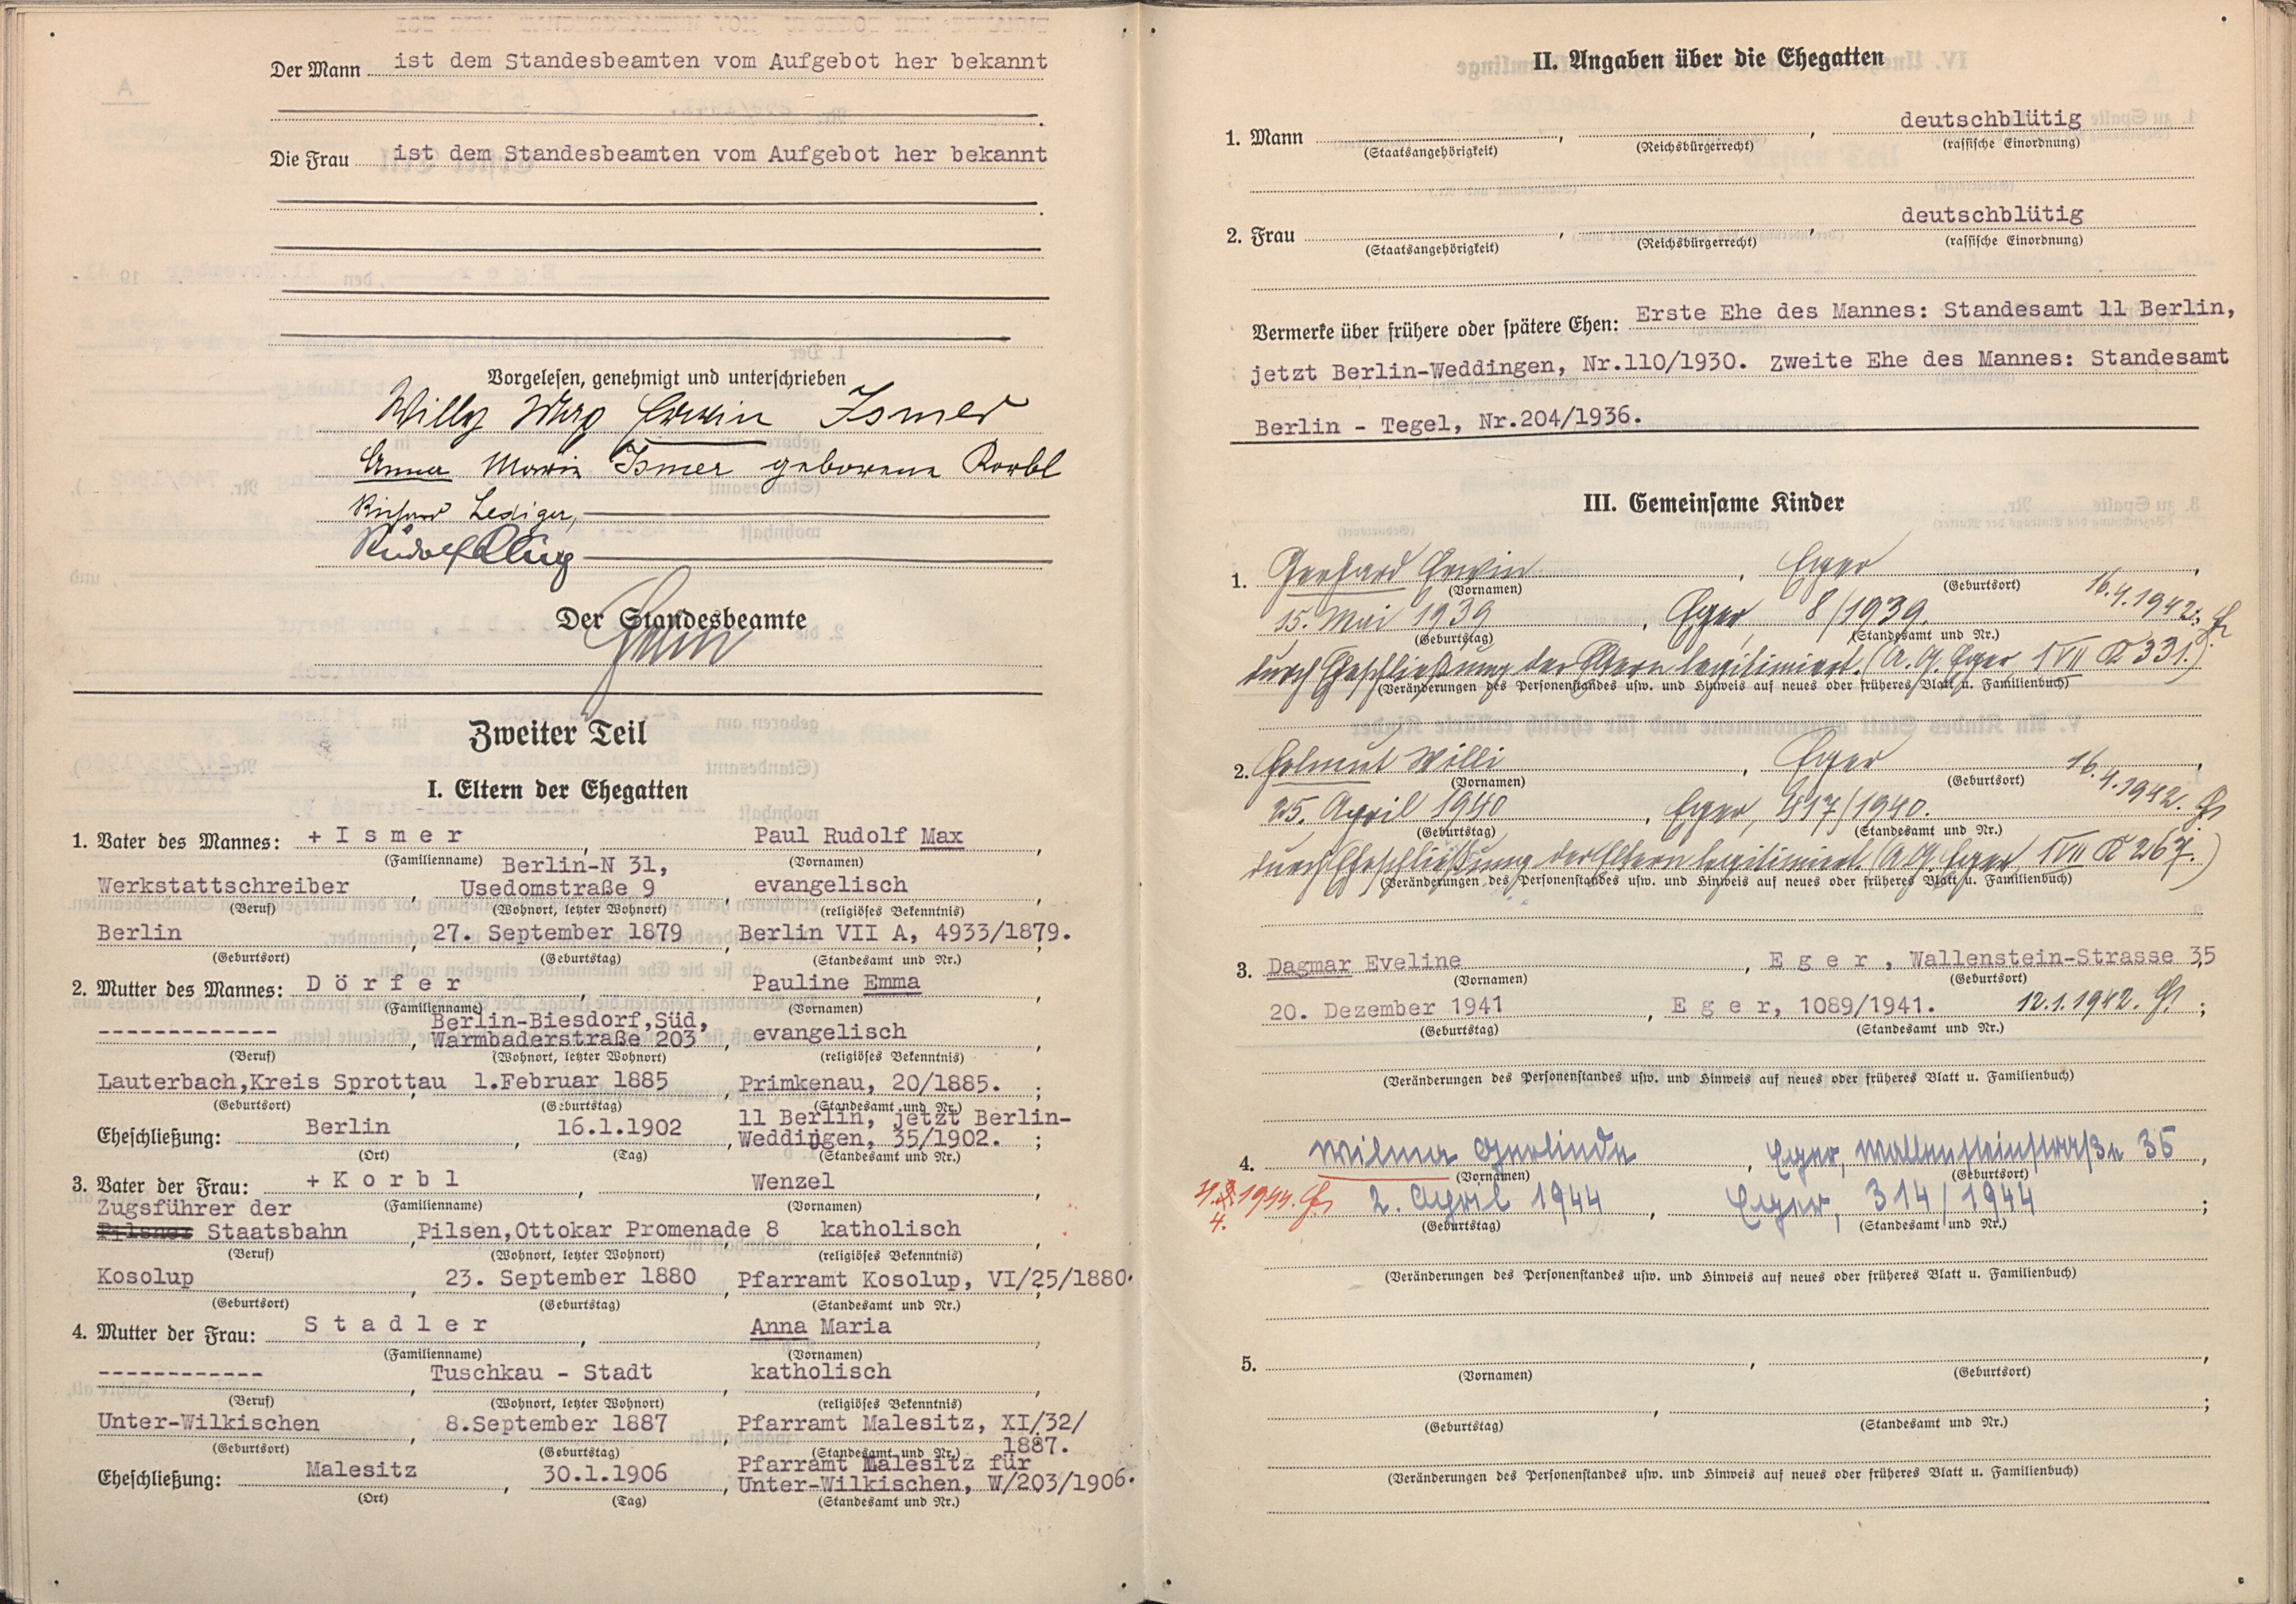 Der Mann ist dem Standesbeamten vom Aufgebot her bekannt
Die Frau ist dem Standesbeamten vom Aufgebot her bekannt
Vorgelesen, genehmigt und unterschrieben
Willy Max Erwin Ismer
Anna Maria Ismer geborene Korbl
Richard Lediger,
Rudolf
Der Standesbeamte
Zweiter Teil
I. Eltern der Ehegatten
1. Vater des Mannes: + I s m e r , Paul Rudolf Max ,
(Familienname) (Vornamen)
Berlin-N 31,
Werkstattschreiber , Usedomstraße 9 , evangelisch ,
(Beruf) (Wohnort, letzter Wohnort) (religiöses Bekenntnis)
Berlin , 27. September 1879 , Berlin VII A, 4933/1879. ;
(Geburtsort) (Geburtstag) (Standesamt und Nr.)
2. Mutter des Mannes: D ö r f e r , Pauline Emma ,
(Familienname) (Vornamen)
Berlin-Biesdorf,Süd,
------------- , Warmbaderstraße 203 , evangelisch ,
(Beruf) (Wohnort, letzter Wohnort) (religiöses Bekenntnis)
Lauterbach,Kreis Sprottau , 1.Februar 1885 , Primkenau, 20/1885. ;
(Geburtsort) (Geburtstag) (Standesamt und Nr.)
11 Berlin, jetzt Berlin-
Eheschließung: Berlin , 16.1.1902 , Weddingen, 35/1902. ;
(Ort) (Tag) (Standesamt und Nr.)
3. Vater der Frau: + K o r b l , Wenzel ,
Zugsführer der (Familienname) (Vornamen)
Pilsner Staatsbahn , Pilsen,Ottokar Promenade 8 , katholisch ,
(Beruf) (Wohnort, letzter Wohnort) (religiöses Bekenntnis)
Kosolup , 23. September 1880 , Pfarramt Kosolup, VI/25/1880. ;
(Geburtsort) (Geburtstag) (Standesamt und Nr.)
4. Mutter der Frau: S t a d l e r , Anna Maria ,
(Familienname) (Vornamen)
------------ , Tuschkau - Stadt , katholisch ,
(Beruf) (Wohnort, letzter Wohnort) (religiöses Bekenntnis)
Unter-Wilkischen , 8.September 1887 , Pfarramt Malesitz, XI/32/
1887.
(Geburtsort) (Geburtstag) (Standesamt und Nr.)
Pfarramt Malesitz für
Eheschließung: Malesitz , 30.1.1906 , Unter-Wilkischen, W/203/1906.
(Ort) (Tag) (Standesamt und Nr.)
II. Angaben über die Ehegatten
1. Mann , , deutschblütig
(Staatsangehörigkeit) (Reichsbürgerrecht) (rassische Einordnung)
2. Frau , , deutschblütig
(Staatsangehörigkeit) (Reichsbürgerrecht) (rassische Einordnung)
Vermerke über frühere oder spätere Ehen: Erste Ehe des Mannes: Standesamt 11 Berlin,
jetzt Berlin-Weddingen, Nr.110/1930. Zweite Ehe des Mannes: Standesamt
Berlin - Tegel, Nr.204/1936.
III. Gemeinsame Kinder
1. Gerhard Erwin , Eger ,
(Vornamen) (Geburtsort)
16.4.1942.
15. Mai 1939 , Eger, 8/1939.
(Geburtstag) (Standesamt und Nr.)
durch Eheschließung der Eltern legitimiert. (A.G. Eger, VII 331.)
(Veränderungen des Personenstandes usw. und Hinweis auf neues oder früheres Blatt u. Familienbuch)
2. Helmut Willi , Eger ,
(Vornamen) (Geburtsort)
16.4.1942.
25. April 1940 , Eger, 417/1940.
(Geburtstag) (Standesamt und Nr.)
durch Eheschließung der Eltern legitimiert. (A.G. Eger VII 267.)
(Veränderungen des Personenstandes usw. und Hinweis auf neues oder früheres Blatt u. Familienbuch)
3. Dagmar Eveline , E g e r , Wallenstein-Strasse 35
(Vornamen) (Geburtsort)
20. Dezember 1941 , E g e r, 1089/1941. 12.1.1942. ;
(Geburtstag) (Standesamt und Nr.)
(Veränderungen des Personenstandes usw. und Hinweis auf neues oder früheres Blatt u. Familienbuch)
4. Wilma Gerlinde , Eger, Wallensteinstraße 35 ,
(Vornamen) (Geburtsort)
1944. 2. April 1944 , Eger, 314/1944 ;
4.
(Geburtstag) (Standesamt und Nr.)
(Veränderungen des Personenstandes usw. und Hinweis auf neues oder früheres Blatt u. Familienbuch)
5. , ,
(Vornamen) (Geburtsort)
, ;
(Geburtstag) (Standesamt und Nr.)
(Veränderungen des Personenstandes usw. und Hinweis auf neues oder früheres Blatt u. Familienbuch)